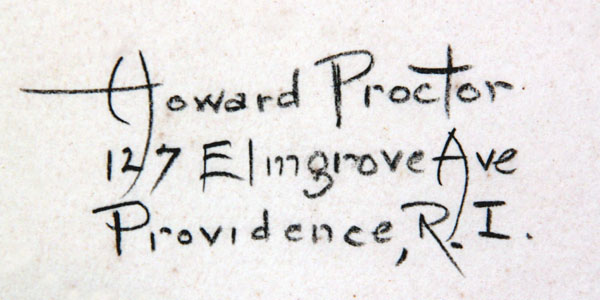 Howard Proctor
127 Elmgrove Ave
Providence, R. I.